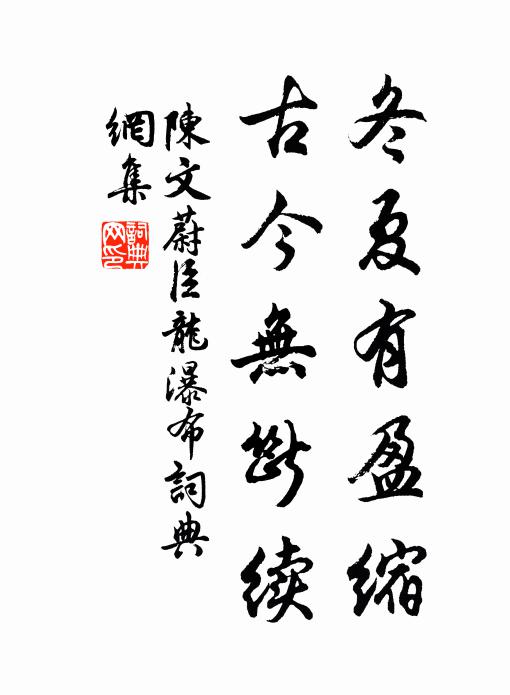 冬夏有盈缩
古今無斷续
陳文蔚臣龍瀑布詞典
網集
詞典
网印